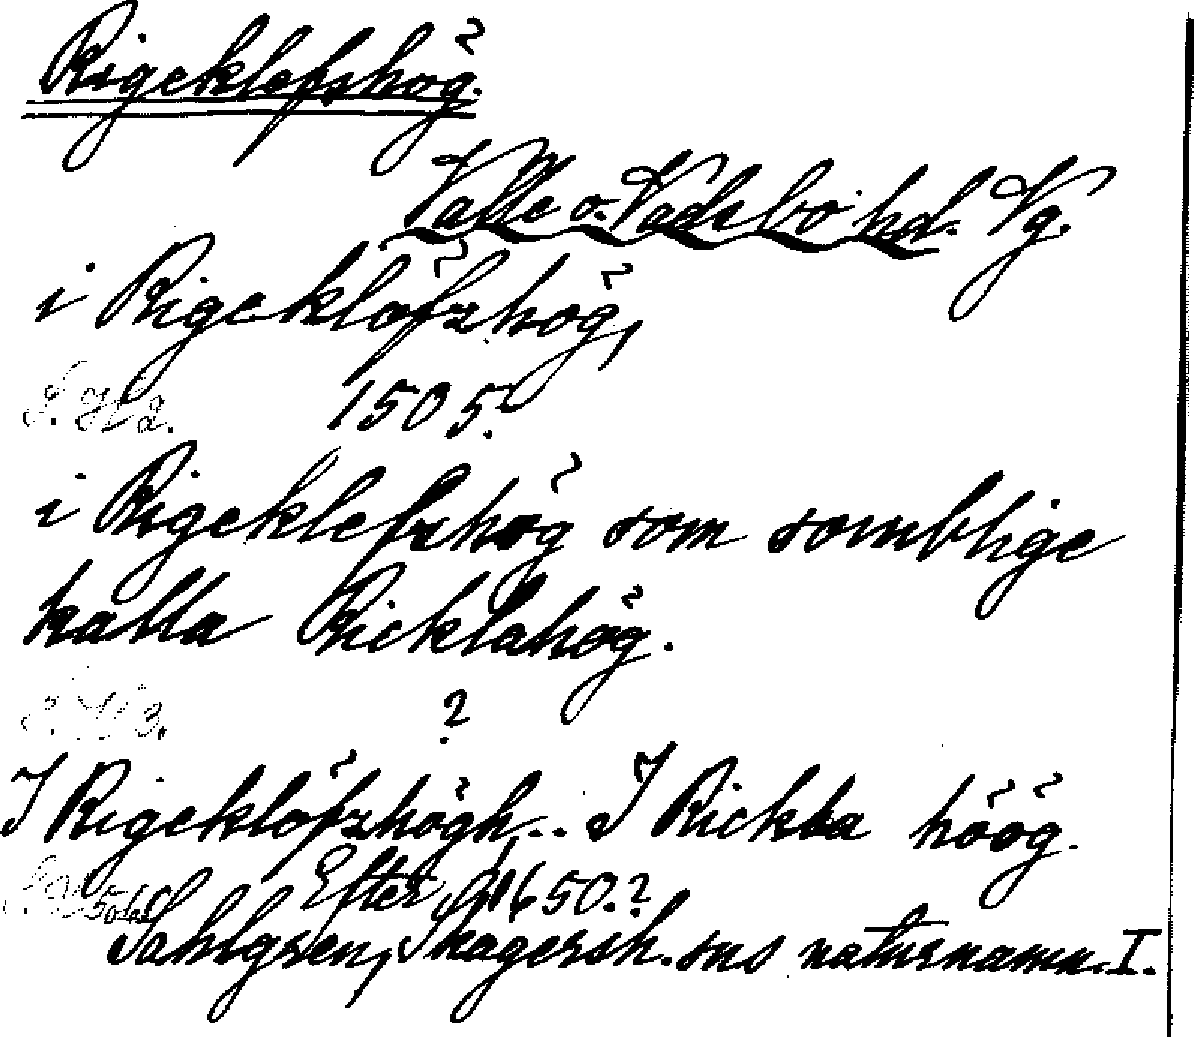 Rigeklefshög.
Valle o. Vadsbo hd. Vg.
i Rigeklöfzhög,
1505.
i Rigeklefzhög som somblige
kalla Ricklahög.
?
I Rigeklöfzhögh... I Rickla höög.
Efter 1650.?
Sahlgren, Skagersh. sns naturnamn. I.